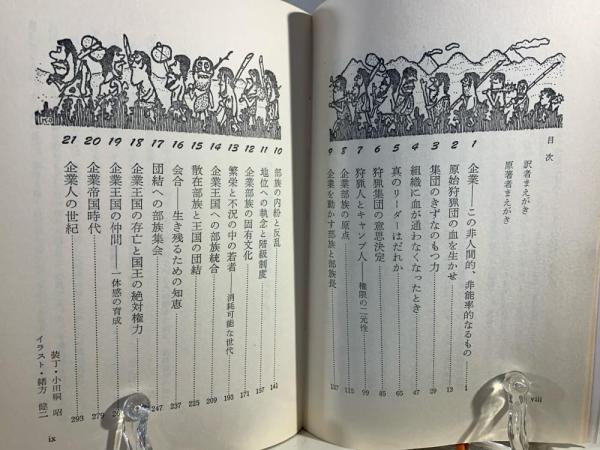 目次
訳者まえがき
原著者まえがき
1 企業——この非人間的、非能率的なるもの 1
2 原始狩猟団の血を生かせ 13
3 集団のきずなのもつ力 29
4 組織に血が通わなくなったとき 47
5 真のリーダーはだれか 65
6 狩猟集団の意思決定 85
7 狩猟人とキャンプ人——権限の二元性 99
8 企業部族の原点 115
9 企業を動かす部族と部族長 127
viii
10 部族の内紛と反乱 141
11 地位への執念と階級制度 157
12 企業部族の固有文化 171
13 繁栄と不況の中の若者——消耗可能な世代 193
14 企業王国への部族統合 209
15 散在部族と王国の団結 225
16 会合——生き残るための知恵 237
17 団結への部族集会 247
18 企業王国の存亡と国王の絶対権力
19 企業王国の仲間——一体感の育成
20 企業帝国時代 279
21 企業人の世紀 293
装丁・小田桐 昭
イラスト・緒方 健二
ix